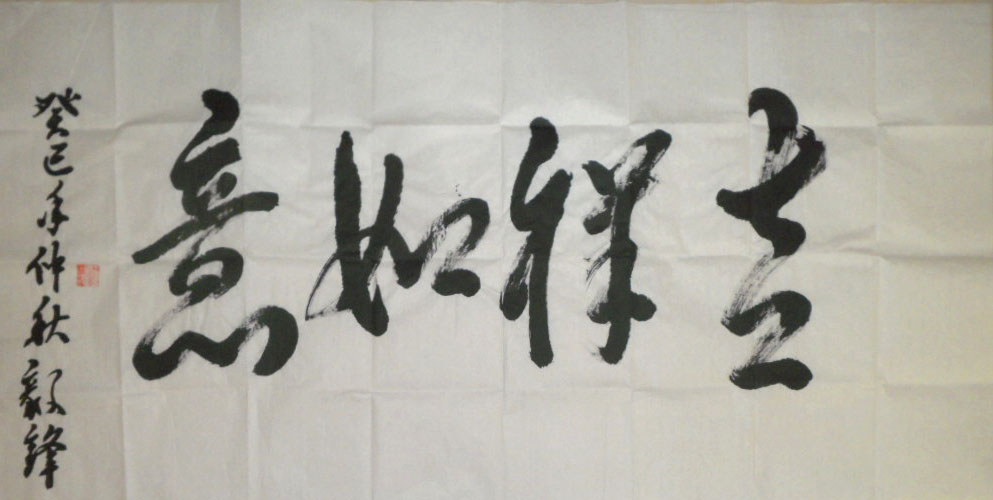 吉祥如意
癸巳年仲秋毅锋